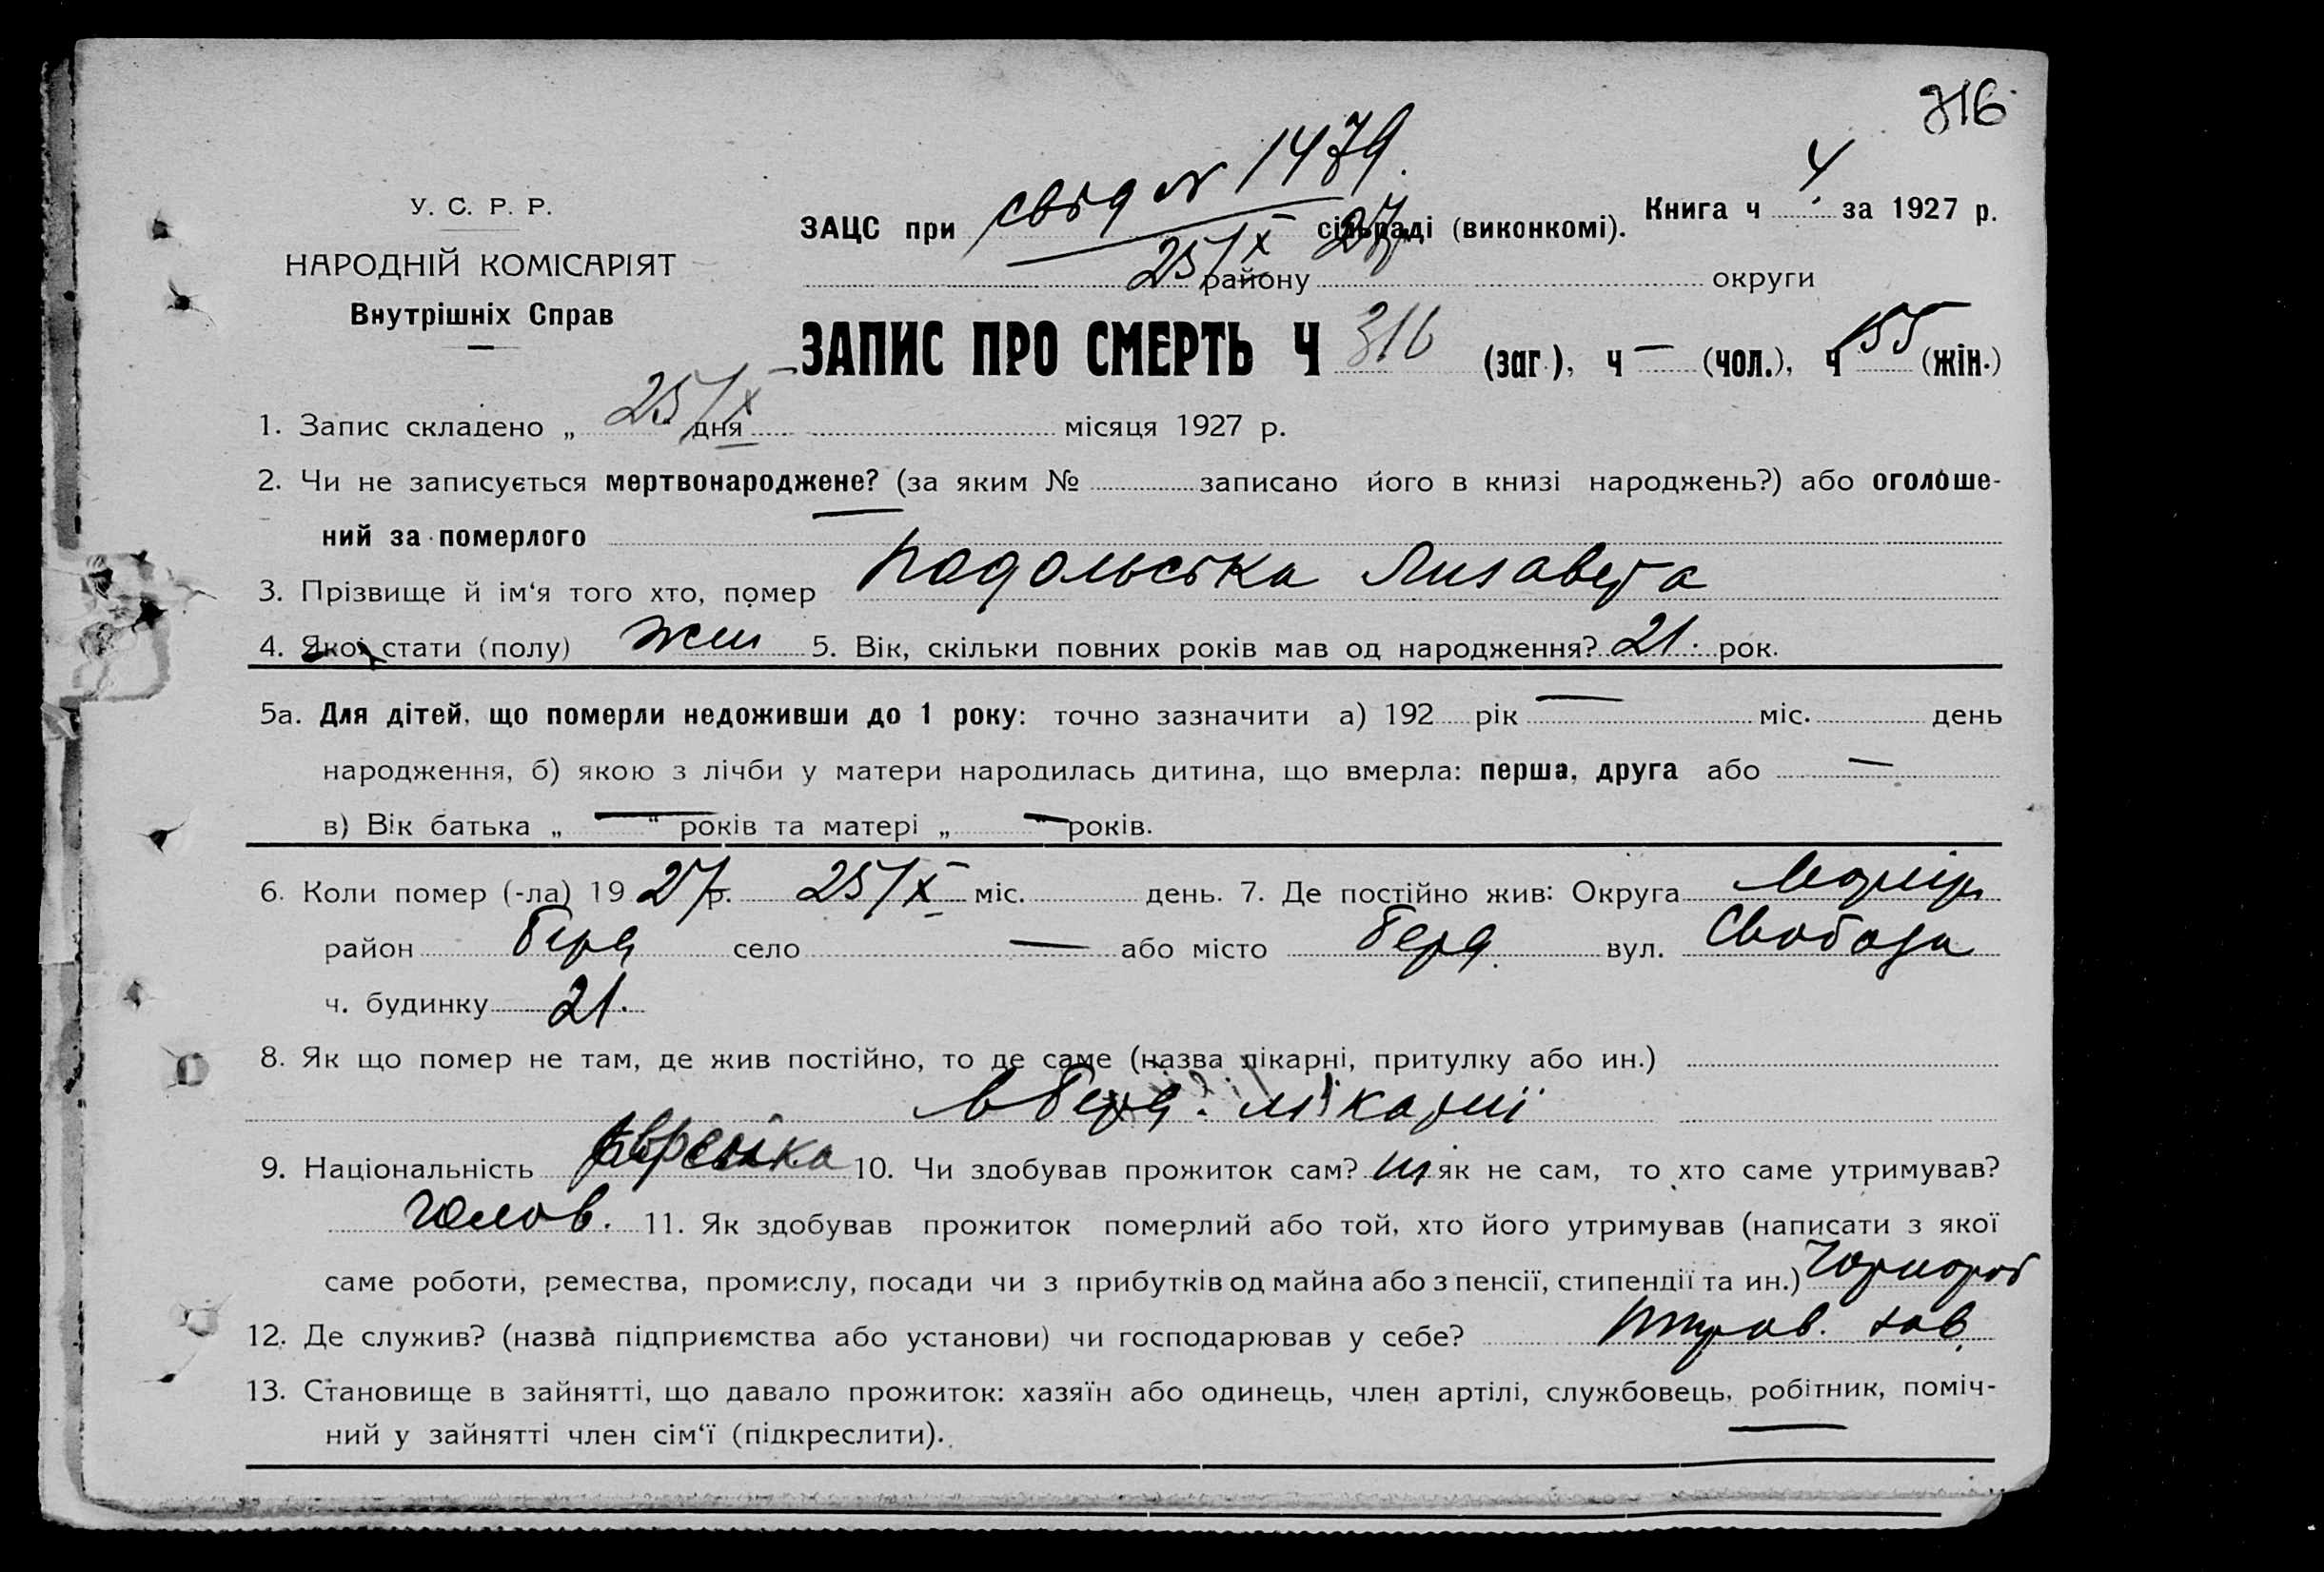 316
свід № 1479.
У. С. Р. Р.
ЗАЦС при сільраді (виконкомі). Книга ч 4 за 1927 р.
25/X 27
НАРОДНІЙ КОМІСАРІЯТ
району округи
Внутрішніх Справ
ЗАПИС ПРО СМЕРТЬ Ч 316 (заг.), ч — (чол.), ч 155 (жін.)
1. Запис складено „ 25/X “ дня місяця 1927 р.
2. Чи не записується мертвонароджене? (за яким № записано його в книзі народжень?) або оголоше-
ний за померлого —
3. Прізвище й ім‘я того хто, помер Подольська Лизавета
4. Якої стати (полу) жін 5. Вік, скільки повних років мав од народження? 21. рок.
5а. Для дітей, що померли недоживши до 1 року: точно зазначити а) 192 рік — міс. день
народження, б) якою з лічби у матери народилась дитина, що вмерла: перша, друга або —
в) Вік батька „ — “ років та матері „ — “ років.
6. Коли помер (-ла) 19 27 р. 25/X міс. день. 7. Де постійно жив: Округа
район Берд село — або місто Берд. вул. Свободи
ч. будинку 21.
8. Як що помер не там, де жив постійно, то де саме (назва лікарні, притулку або ин.)
в Берд. лікарні
9. Національність Єврейка 10. Чи здобував прожиток сам? ні як не сам, то хто саме утримував?
чолов. 11. Як здобував прожиток померлий або той, хто його утримував (написати з якої
саме роботи, ремества, промислу, посади чи з прибутків од майна або з пенсії, стипендії та ин.) чорнороб
12. Де служив? (назва підприємства або установи) чи господарював у себе? зав.
13. Становище в зайнятті, що давало прожиток: хазяїн або одинець, член артілі, службовець, робітник, поміч-
ний у зайнятті член сім‘ї (підкреслити).